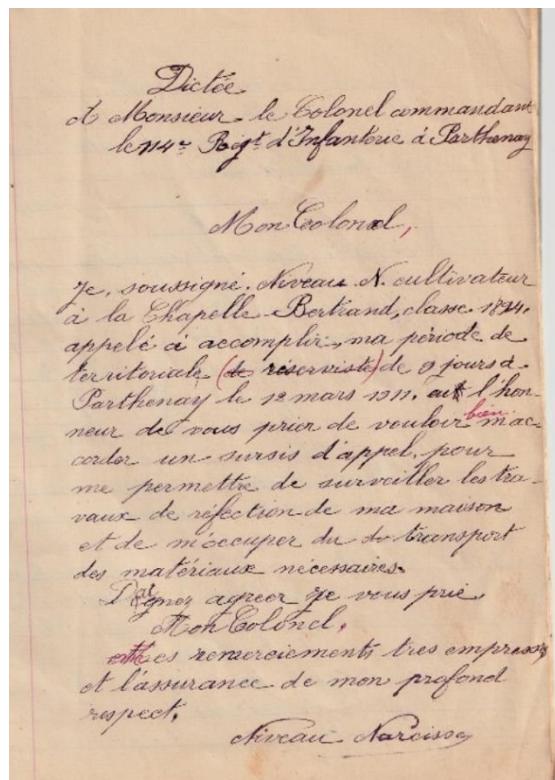 Dictée
A Monsieur le Colonel commandant
le 114e Rigt d'Infanterie à Parthenay
Mon Colonel,
Je, soussigné. Niveau. N. cultivateur
à la Chapelle-Bertrand, classe 1894.
appelé à accomplir, ma période de
territoriale (de réserviste) de 9 jours à
Parthenay le 12 mars 1911. ai l'hon-
neur de vous prier de vouloir bien m'ac-
corder un sursis d'appel, pour
me permettre de surveiller les tra-
vaux de réfection de ma maison
et de m'occuper du transport
des matériaux nécessaires.
Daignez agreer je vous prie
Mon Colonel.
mes remerciements tres empressés
et l'assurance de mon profond
respect.
Niveau Narcisse